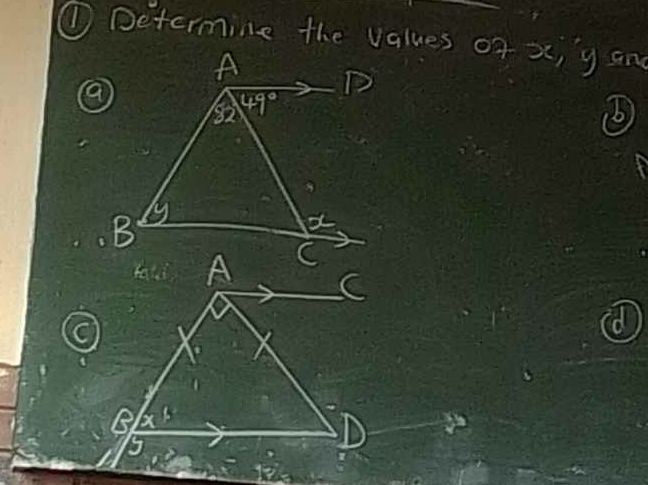 ① Determine the values of x, y and
ⓐ
A
D
82
49°
B
y
x
C
ⓑ
ⓒ
A
C
B
x
y
D
ⓓ